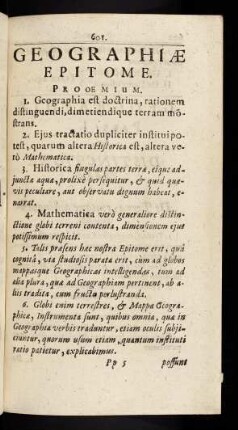 601.
GEOGRAPHIÆ
EPITOME.
PROOEMIUM.
1. Geographia est doctrina, rationem
distinguendi, dimetiendique terram mõ-
strans.
2. Ejus tractatio dupliciter institui po-
test, quarum altera Historica est, altera ve-
rò Mathematica.
3. Historica singulas partes terræ, eique ad-
juncta aquæ, prolixè persequitur, & quid quæ-
vis peculiare, aut observatu dignum habeat, e-
narrat.
4. Mathematica verò generaliore distin-
ctione globi terreni contenta, dimensionem ejus
potissimum respicit.
5. Talis præsens hæc nostra Epitome erit, quâ
cognitâ, via studiosis parata erit, cùm ad globos
mappasque Geographicas intelligendas, tum ad
alia plura, quæ ad Geographiam pertinent, ab a-
liis tradita, cum fructu perlustranda.
6. Globi enim terrestres, & Mappæ Geogra-
phicæ, Instrumenta sunt, quibus omnia, quæ in
Geographia verbis traduntur, etiam oculis subji-
ciuntur, quorum usum etiam, quantum instituti
ratio patietur, explicabimus.
Pp 5 possunt